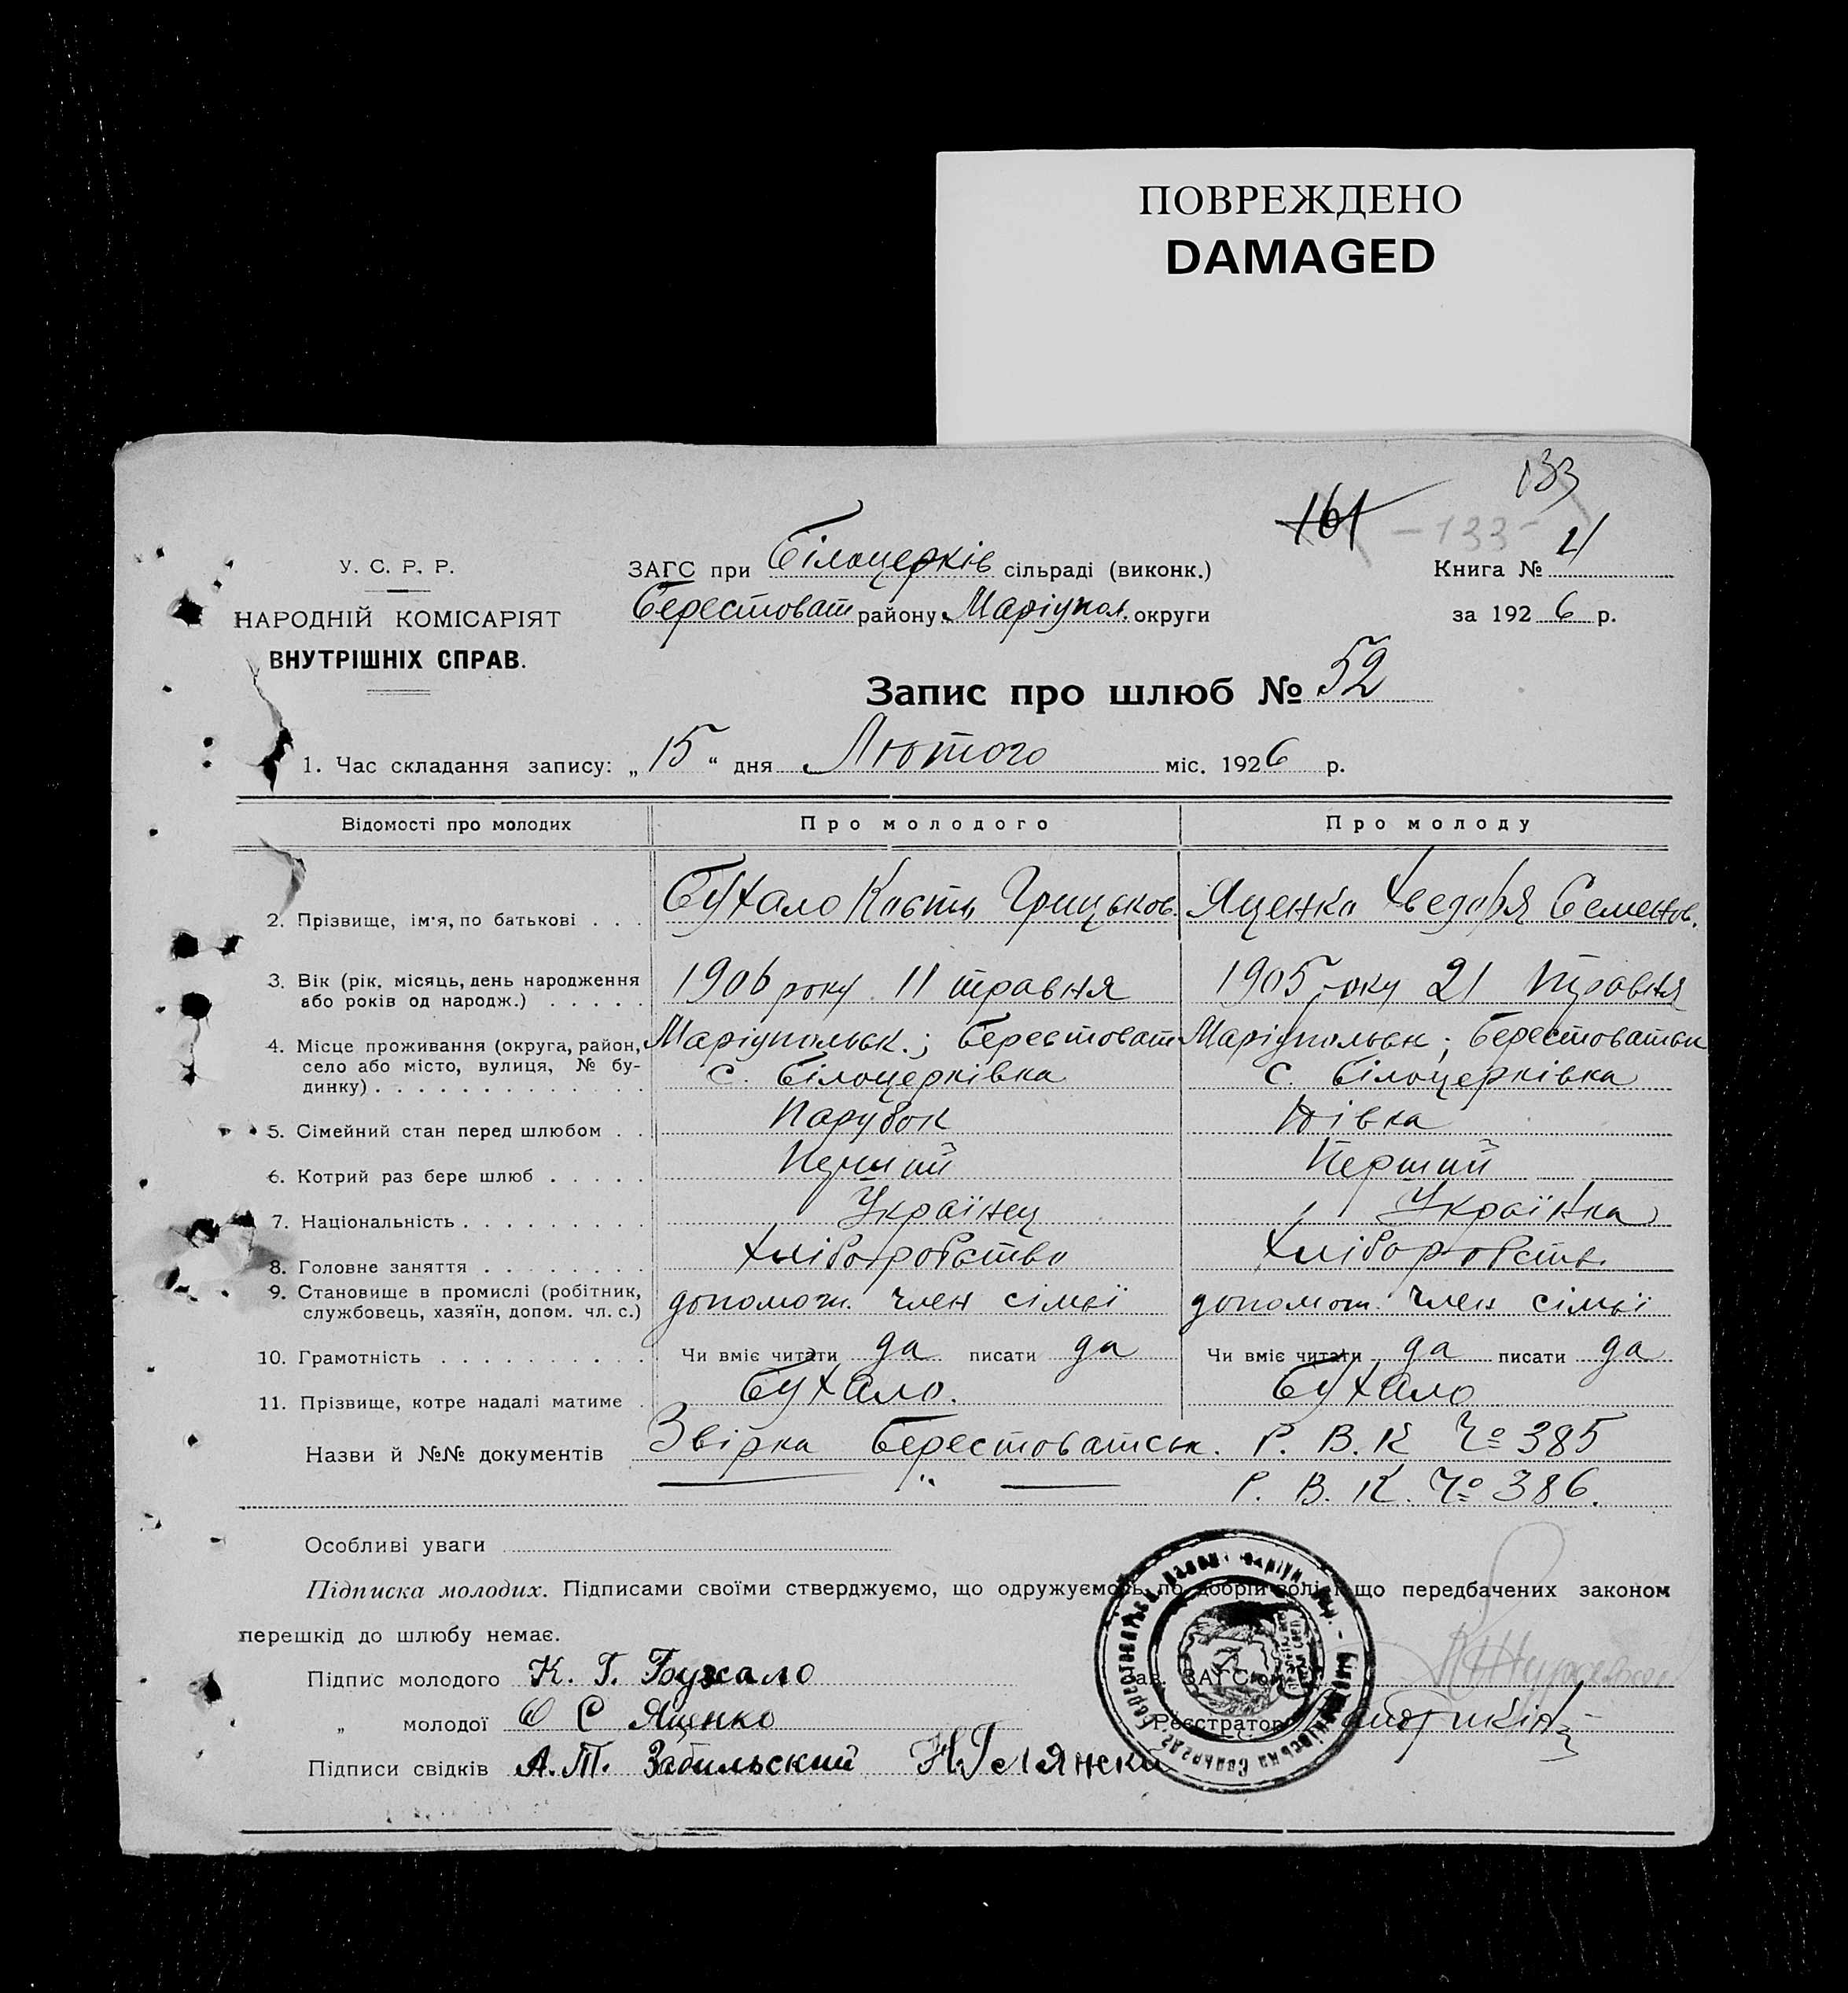 ПОВРЕЖДЕНО
DAMAGED
133
161
-133-
У. С. Р. Р.
НАРОДНІЙ КОМІСАРІЯТ
ВНУТРІШНІХ СПРАВ.
ЗАГС при Білоцерків сільраді (виконк.)
Берестоват району Маріупол. округи
Книга №
за 1926 р.
Запис про шлюб № 52
1. Час складання запису: „15“ дня Лютого міс. 1926 р.
Відомості про молодих Про молодого Про молоду
2. Прізвище, ім'я, по батькові . . . Бухало Кость Грицьков. Яценко Хведора Семенов.
3. Вік (рік, місяць, день народження або років од народж.) . . . . . 1906 року 11 травня 1905 року 21 травня
4. Місце проживання (округа, район, село або місто, вулиця, № будинку) . . . Маріупольск.; Берестоват с. Білоцерківка Маріупольск; Берестоватськ с. Білоцерківка
5. Сімейний стан перед шлюбом . . Парубок Дівка
6. Котрий раз бере шлюб . . . . . Перший Перший
7. Національність . . . . . . . . . Українец Українка
8. Головне заняття . . . . . . . . Хліборобство Хліборобств.
9. Становище в промислі (робітник, службовець, хазяїн, допом. чл. с.) допомож. член сімьї допомож. член сімьї
10. Грамотність . . . . . . . . . . Чи вміє читати да писати да Чи вміє читати да писати да
11. Прізвище, котре надалі матиме . Бухало. Бухало
Назви й №№ документів Звірка Берестоватськ. Р. В. К № 385
— " — Р. В. К. № 386.
Особливі уваги
Підписка молодих. Підписами своїми стверджуємо, що одружуємось по добрій волі і що передбачених законом
перешкід до шлюбу немає.
Підпис молодого К. Г. Бухало
Зав. ЗАГС'ом
„ молодої О С Яценко
Реєстратор
Підписи свідків А. Т. Забильский